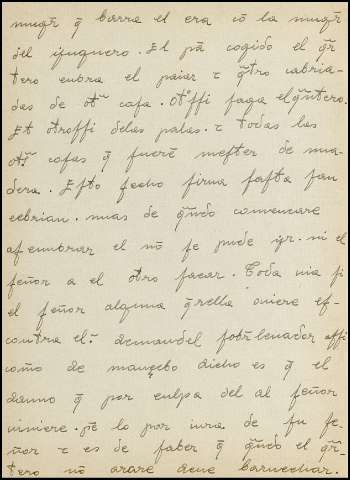 mugr̃ q̃ barra el era cõ la mugr̃
del yuguero. El pã cogido el qr̃-
tero cubra el paiar τ q̃tro cabria-
das de otr̃a casa. Otºssi faga el qñtero.
Et otrossi delas palas. τ todas las
otr̃s cosas q̃ fuerẽ mester de ma-
dera. Esto fecho sirua fasta san
cebrian. mas de qñdo comencare
asembrar el nõ se pude yr. ni el
señor a el otro sacar. Toda uia si
el señor alguna qr̃ella ouiere es-
contra el: demandel sobr̃leuador assi
como de mançebo dicho es q̃ el
danno q̃ por culpa del al señor
uiniere. pẽ lo por iura de su se-
ñor τ es de saber q̃ qñdo el qr̃-
tero nõ arare deue baruechar.